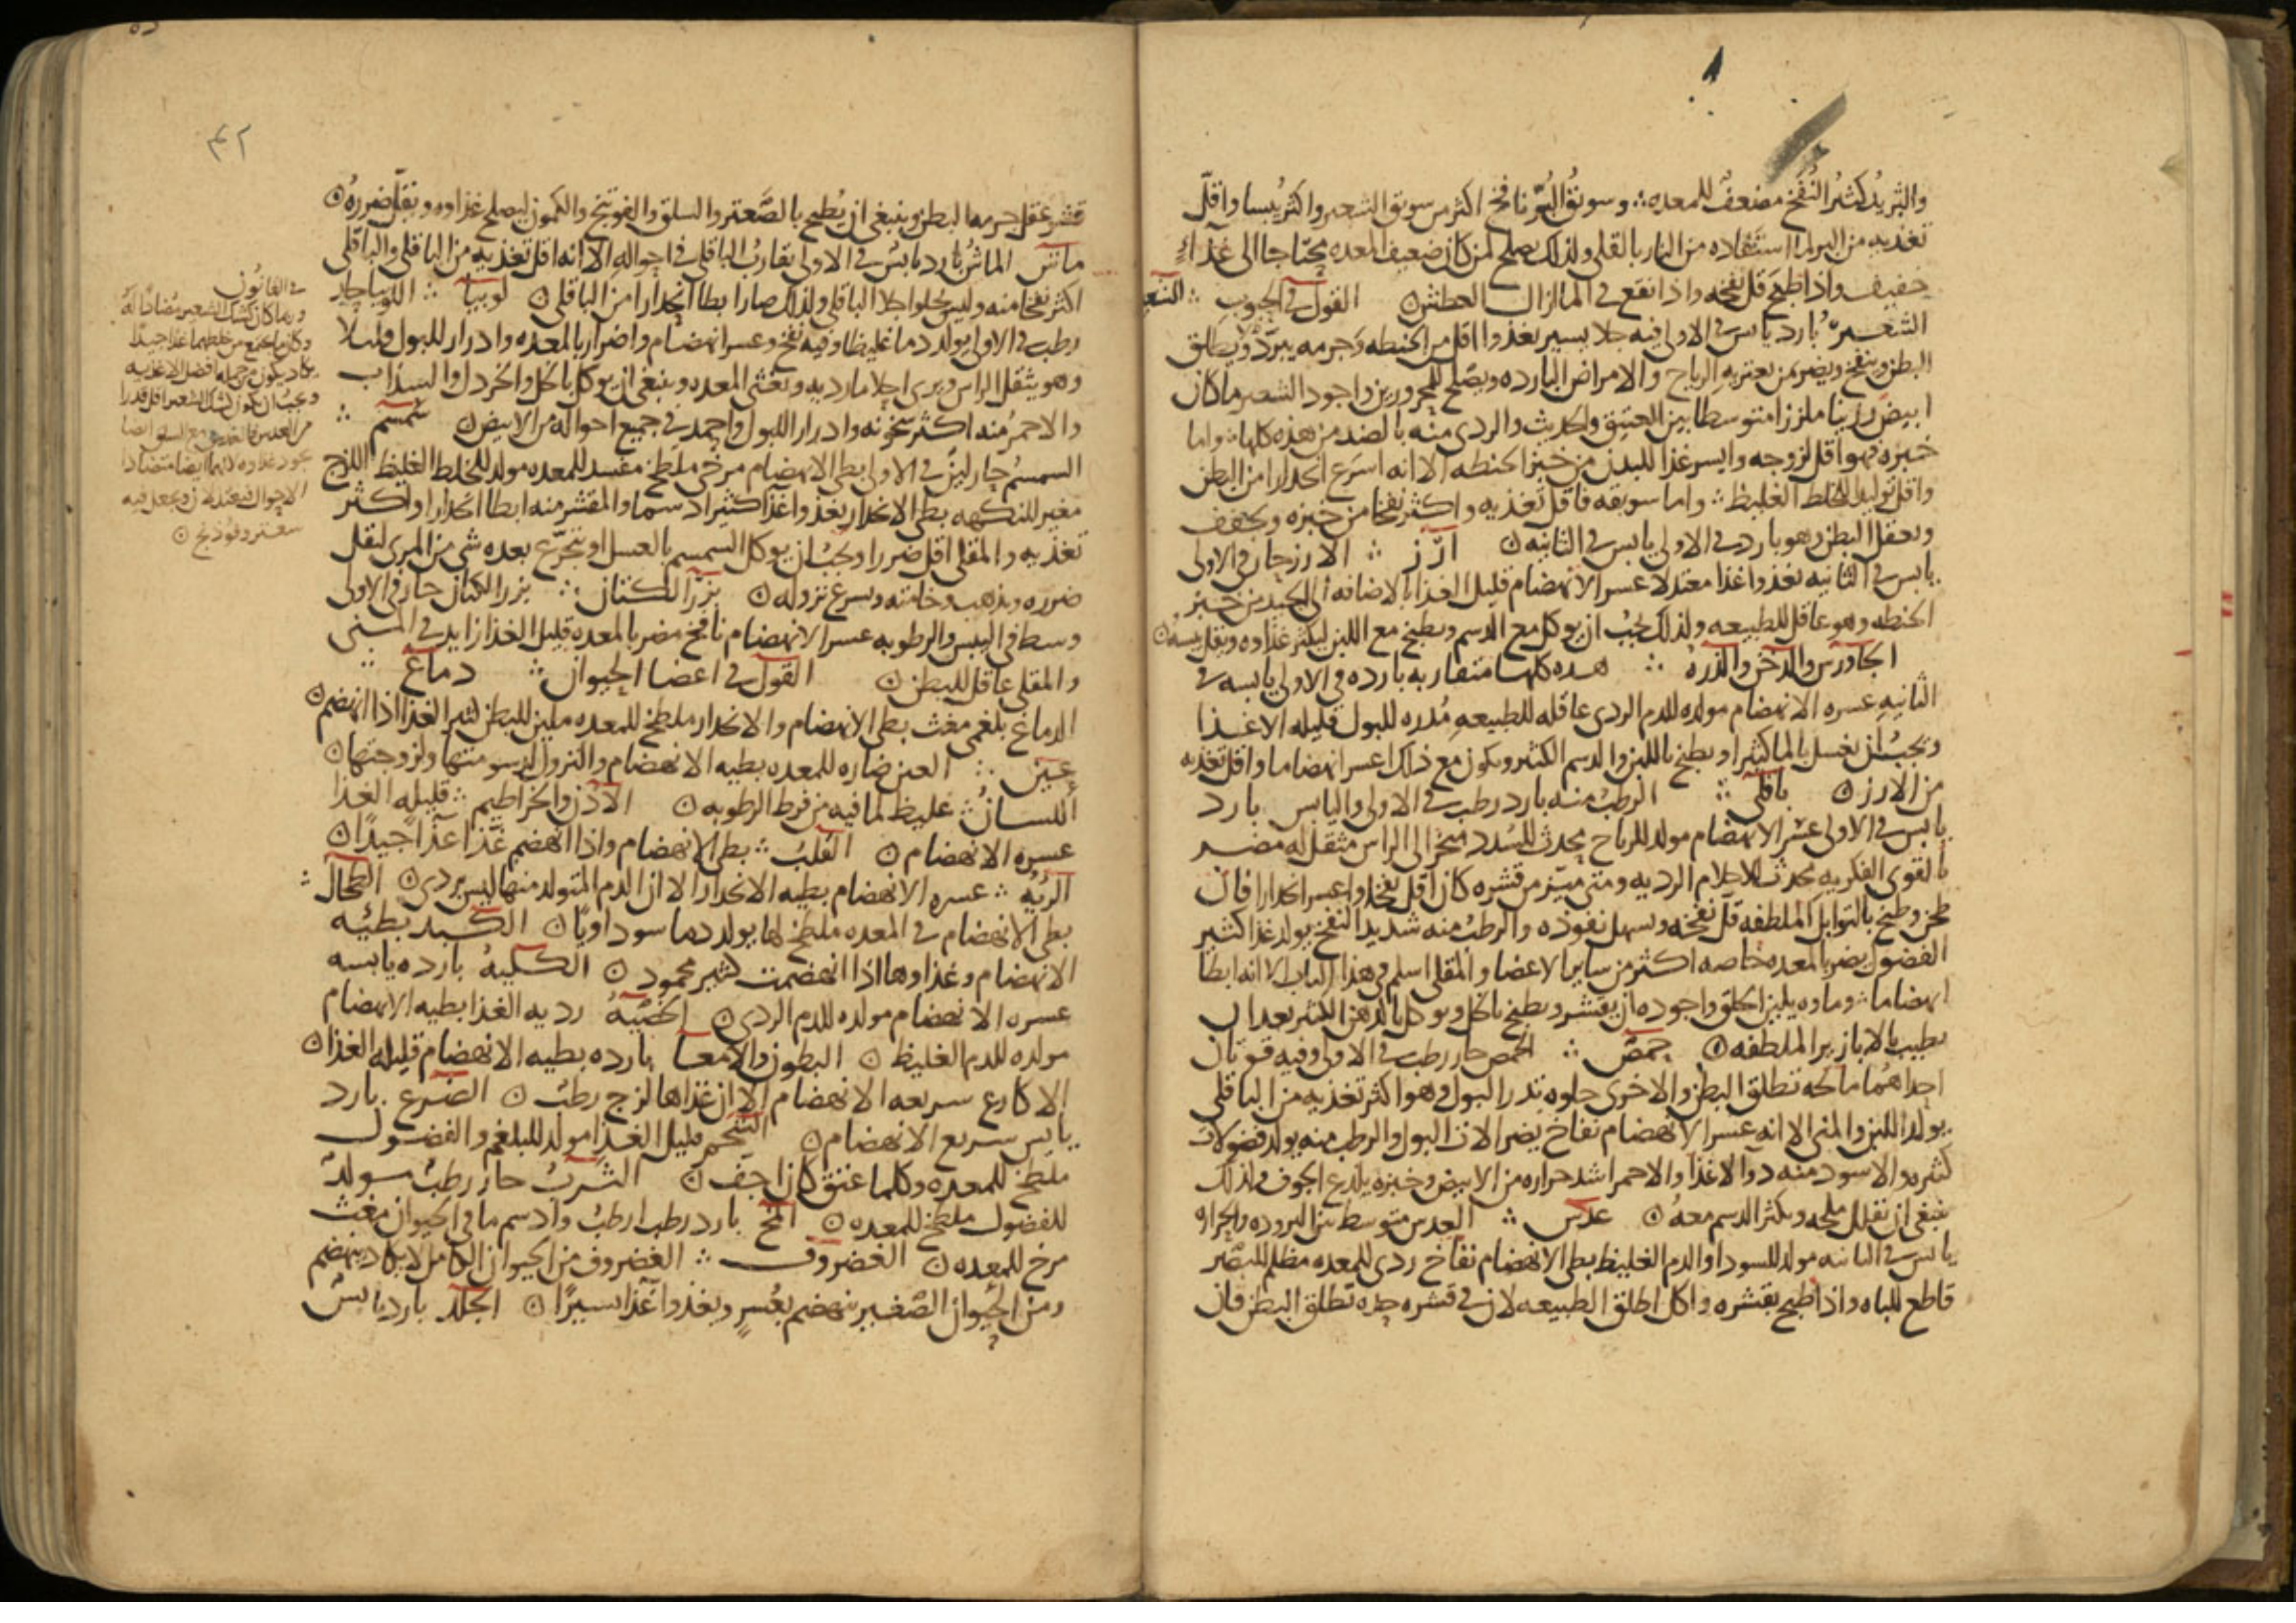 والثريد كثير النفخ مضعف للمعده ∴ وسويق البر نافخ اكثر من سويق الشعير واكثر يبسا واقل
تغذيه من البر لما استفاده من النار بالقلي ولذلك يصلح لمن كان ضعيف المعده محتاجا الى غذاء
خفيف واذا طبخ قل نفخه واذا نقع في الما ازال العطش ۞ القول في الحبوب ∴ الشعير
الشعير بارد يابس في الاولى فيه جلا يسير يغذوا اقل من الحنطه وجرمه يبرد ويطلق
البطن وينفخ ويضر بمن يعتريه الرياح والامراض البارده ويصلح للمحرورين واجود الشعير ما كان
ابيض رزينا ملززا متوسطا بين العتيق والحديث والردي منه بالضد من هذه كلها ∴ واما
خبزه فهو اقل لزوجه وايسر غذا للبدن من خبز الحنطه الا انه اسرع انحدارا من البطن
واقل توليدا للخلط الغليظ ∴ واما سويقه فاقل تغذيه واكثر نفخا من خبزه ويجفف
ويعقل البطن وهو بارد في الاولى يابس في الثانيه ۞ ارز ∴ الارز حار في الاولى
يابس في الثانيه يغذوا غذا معتدلا عسر الانهضام قليل الغذا بالاضافه الى الجيد من خبز
الحنطه وهو عاقل للطبيعه ولذلك يجب ان يوكل مع الدسم ويطبخ مع اللبن ليكثر غذاوه ويقل يبسه ۞
الجاورس والدخن والذره ∴ هذه كلها متقاربه بارده في الاولى يابسه في
الثانيه عسره الانهضام مولده للدم الردي عاقله للطبيعه مدره للبول قليله الاغذا
ويجب ان تغسل بالما كثيرا ويطبخ باللبن والدسم الكثير ويكون مع ذلك اعسر انهضاما واقل تغذيه
من الارز ۞ باقلى ∴ الرطب منه بارد رطب في الاولى واليابس بارد
يابس في الاولى عسر الانهضام مولد للرياح يحدث السدد مبخر الى الراس مثقل له مضر
بالقوى الفكريه محدث للاحلام الرديه ومتى ميز من قشره كان اقل نفخا واعسر انحدارا فان
طحن وطبخ بالتوابل الملطفه قل نفخه وسهل نفوذه والرطب منه شديد النفخ يولد غذا كثير
الفضول يضر بالمعده خاصه اكثر من ساير الاعضا والمقلى اسلم في هذا الباب الا انه ابطا
انهضاما ∴ وماوه يلين الحلق واجوده ان يقشر ويطبخ بالخل ويوكل بالدهن الكثير بعد ان
يطيب بالابازير الملطفه ۞ حمص ∴ الحمص حار رطب في الاولى وفيه قوتان
احداهما مالحه تطلق البطن والاخرى حلوه تدر البول وهو اكثر تغذيه من الباقلى
يولد اللبن والمنى الا انه عسر الانهضام نفاخ يضر الات البول والرطب منه يولد فضولات
كثيره والاسود منه دوا لا غذا والاحمر اشد حراره من الابيض وخبزه يلذع الجوف فلذلك
ينبغي ان يقلل ملحه ويكثر الدسم معه ۞ عدس ∴ العدس متوسط بين البروده والحراره
يابس في الثانيه مولد للسودا والدم الغليظ بطى الانهضام نفاخ ردى للمعده مظلم للبصر
قاطع للباه واذا طبخ بقشره واكل اطلق الطبيعه لان في قشره حده تطلق البطن فان
٤٢
قشر عقل جرمه البطن وينبغي ان يطبخ بالصعتر والسلق والفوتنج والكمون ليصلح غذاوه ويقل ضرره ۞
ماش الماش بارد يابس في الاولى تقارب الباقلى في احواله الا انه اقل تغذيه من الباقلى والباقلى
اكثر نفخا منه وليس يجلوا جلا الباقلى ولذلك صار ابطا انحدارا من الباقلى ۞ لوبيا ∴ اللوبيا حار
رطب في الاولى يولد دما غليظا وفيه نفخ وعسر انهضام واضرار بالمعده وادرار للبول
وهو يثقل الراس ويرى احلاما رديه ويغثى المعده وينبغي ان يوكل بالخل والخردل والسذاب
والاحمر منه اكثر سخونه وادرار اللبول واحمد في جميع احواله من الابيض ۞ سمسم ∴
السمسم حار لين في الاولى بطى الانهضام مرخى ملطخ مفسد للمعده مولد للخلط الغليظ اللزج
مغير للنكهه بطى الانحدار يغذوا غذا كثيرا دسما والمقشر منه ابطا انحدارا واكثر
تغذيه والمقلى اقل ضررا ويجب ان يوكل السمسم بالعسل او يتجرع بعده شى من المرى ليقل
ضرره ويذهب وخامته ويسرع نزوله ۞ بزر الكتان ∴ بزر الكتان حار في الاولى
وسط في اليبس والرطوبه عسر الانهضام نافخ مضر بالمعده قليل الغذا زايد في المنى
والمقلى عاقل للبطن ۞ القول في اعضا الحيوان ∴ دماغ
الدماغ بلغمى مغث بطى الانهضام والانحدار ملطخ للمعده ملين للبطن كثير الغذا اذا انهضم ۞
عين ∴ العين ضاره للمعده بطيه الانهضام والنزول لدسومتها ولزوجتها ۞
اللسان ∴ غليظ لما فيه من فرط الرطوبه ۞ الاذن والخراطيم ∴ قليله الغذا
عسره الانهضام ۞ القلب ∴ بطى الانهضام واذا انهضم غذا غذا جيدا ۞
الريه ∴ عسره الانهضام بطيه الانحدار الا ان الدم المتولد منها ليس بردى ۞ الطحال ∴
بطى الانهضام في المعده ملطخ لها يولد دما سوداويا ۞ الكبد بطيئه
الانهضام وغذاوها اذا انهضمت كثير محمود ۞ الكليه بارده يابسه
عسره الانهضام مولده للدم الردى ۞ الخصيه رديه الغذا بطيه الانهضام
مولده للدم الغليظ ۞ البطون والامعا بارده بطيه الانهضام قليله الغذا ۞
الاكارع سريعه الانهضام الا ان غذاها لزج رطب ۞ الضرع بارد
يابس سريع الانهضام ۞ الشحم قليل الغذا مولد للبلغم والفضول
ملطخ للمعده وكلما عتق كان اجف ۞ الثرب حار رطب مولد
للفضول ملطخ للمعده ۞ المخ بارد رطب ارطب وادسم ما في الحيوان مغث
مرخ للمعده ۞ الغضروف ∴ الغضروف من الحيوان الكامل لا يكاد ينهضم
ومن الحيوان الصغير ينهضم بعسر ويغذوا غذا يسيرا ۞ الجلد بارد يابس
في القانون
وربما كان كشك الشعير مضادا له
وكان ما يجتمع من خلطهما غذا جيدا
يكاد يكون من جمله افضل الاغذيه
ويجب ان يكون كشك الشعير اقل قدرا
من العدس مع السلق ايضا
يجود غذاوه لانهما ايضا متضادا
الاحوال يجعل فيه
سعتر وفوذنج ۞